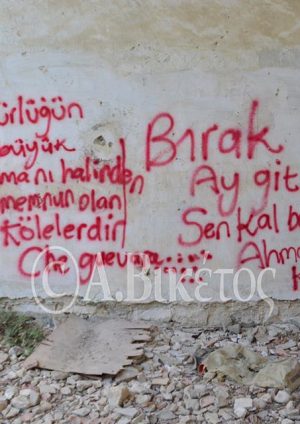 ürlüğün
büyük
manı halinden
memnun olan
kölelerdir
Che guevara.....
Bırak
Ay git
Sen Kal b
Ahm
©A.Βικέτος